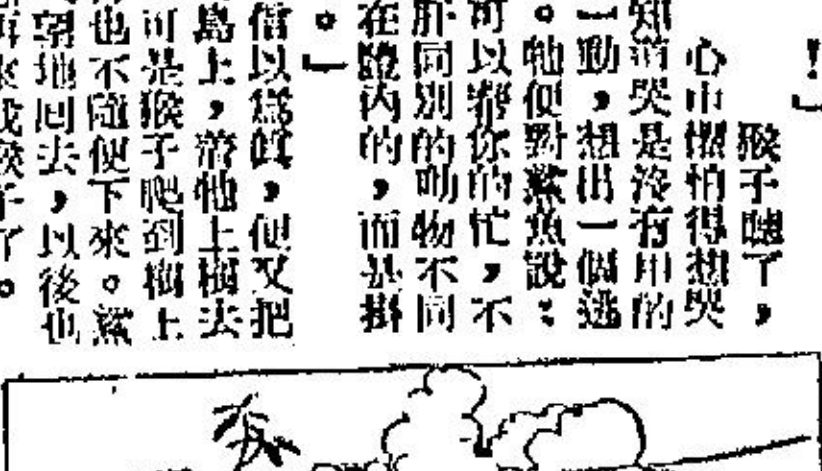 ！」
猴子聽了，
心中懼怕得想哭
知道哭是沒有用的
一動，想出一個逃
。牠便對鯊魚說：
可以幫你的忙，不
肝同別的動物不同
在體內的，而是掛
。」
信以爲眞，便又把
島上，牠上樹去
可是猴子爬到樹上
也不隨便下來。鯊
望地回去，以後也
再來找猴子了。